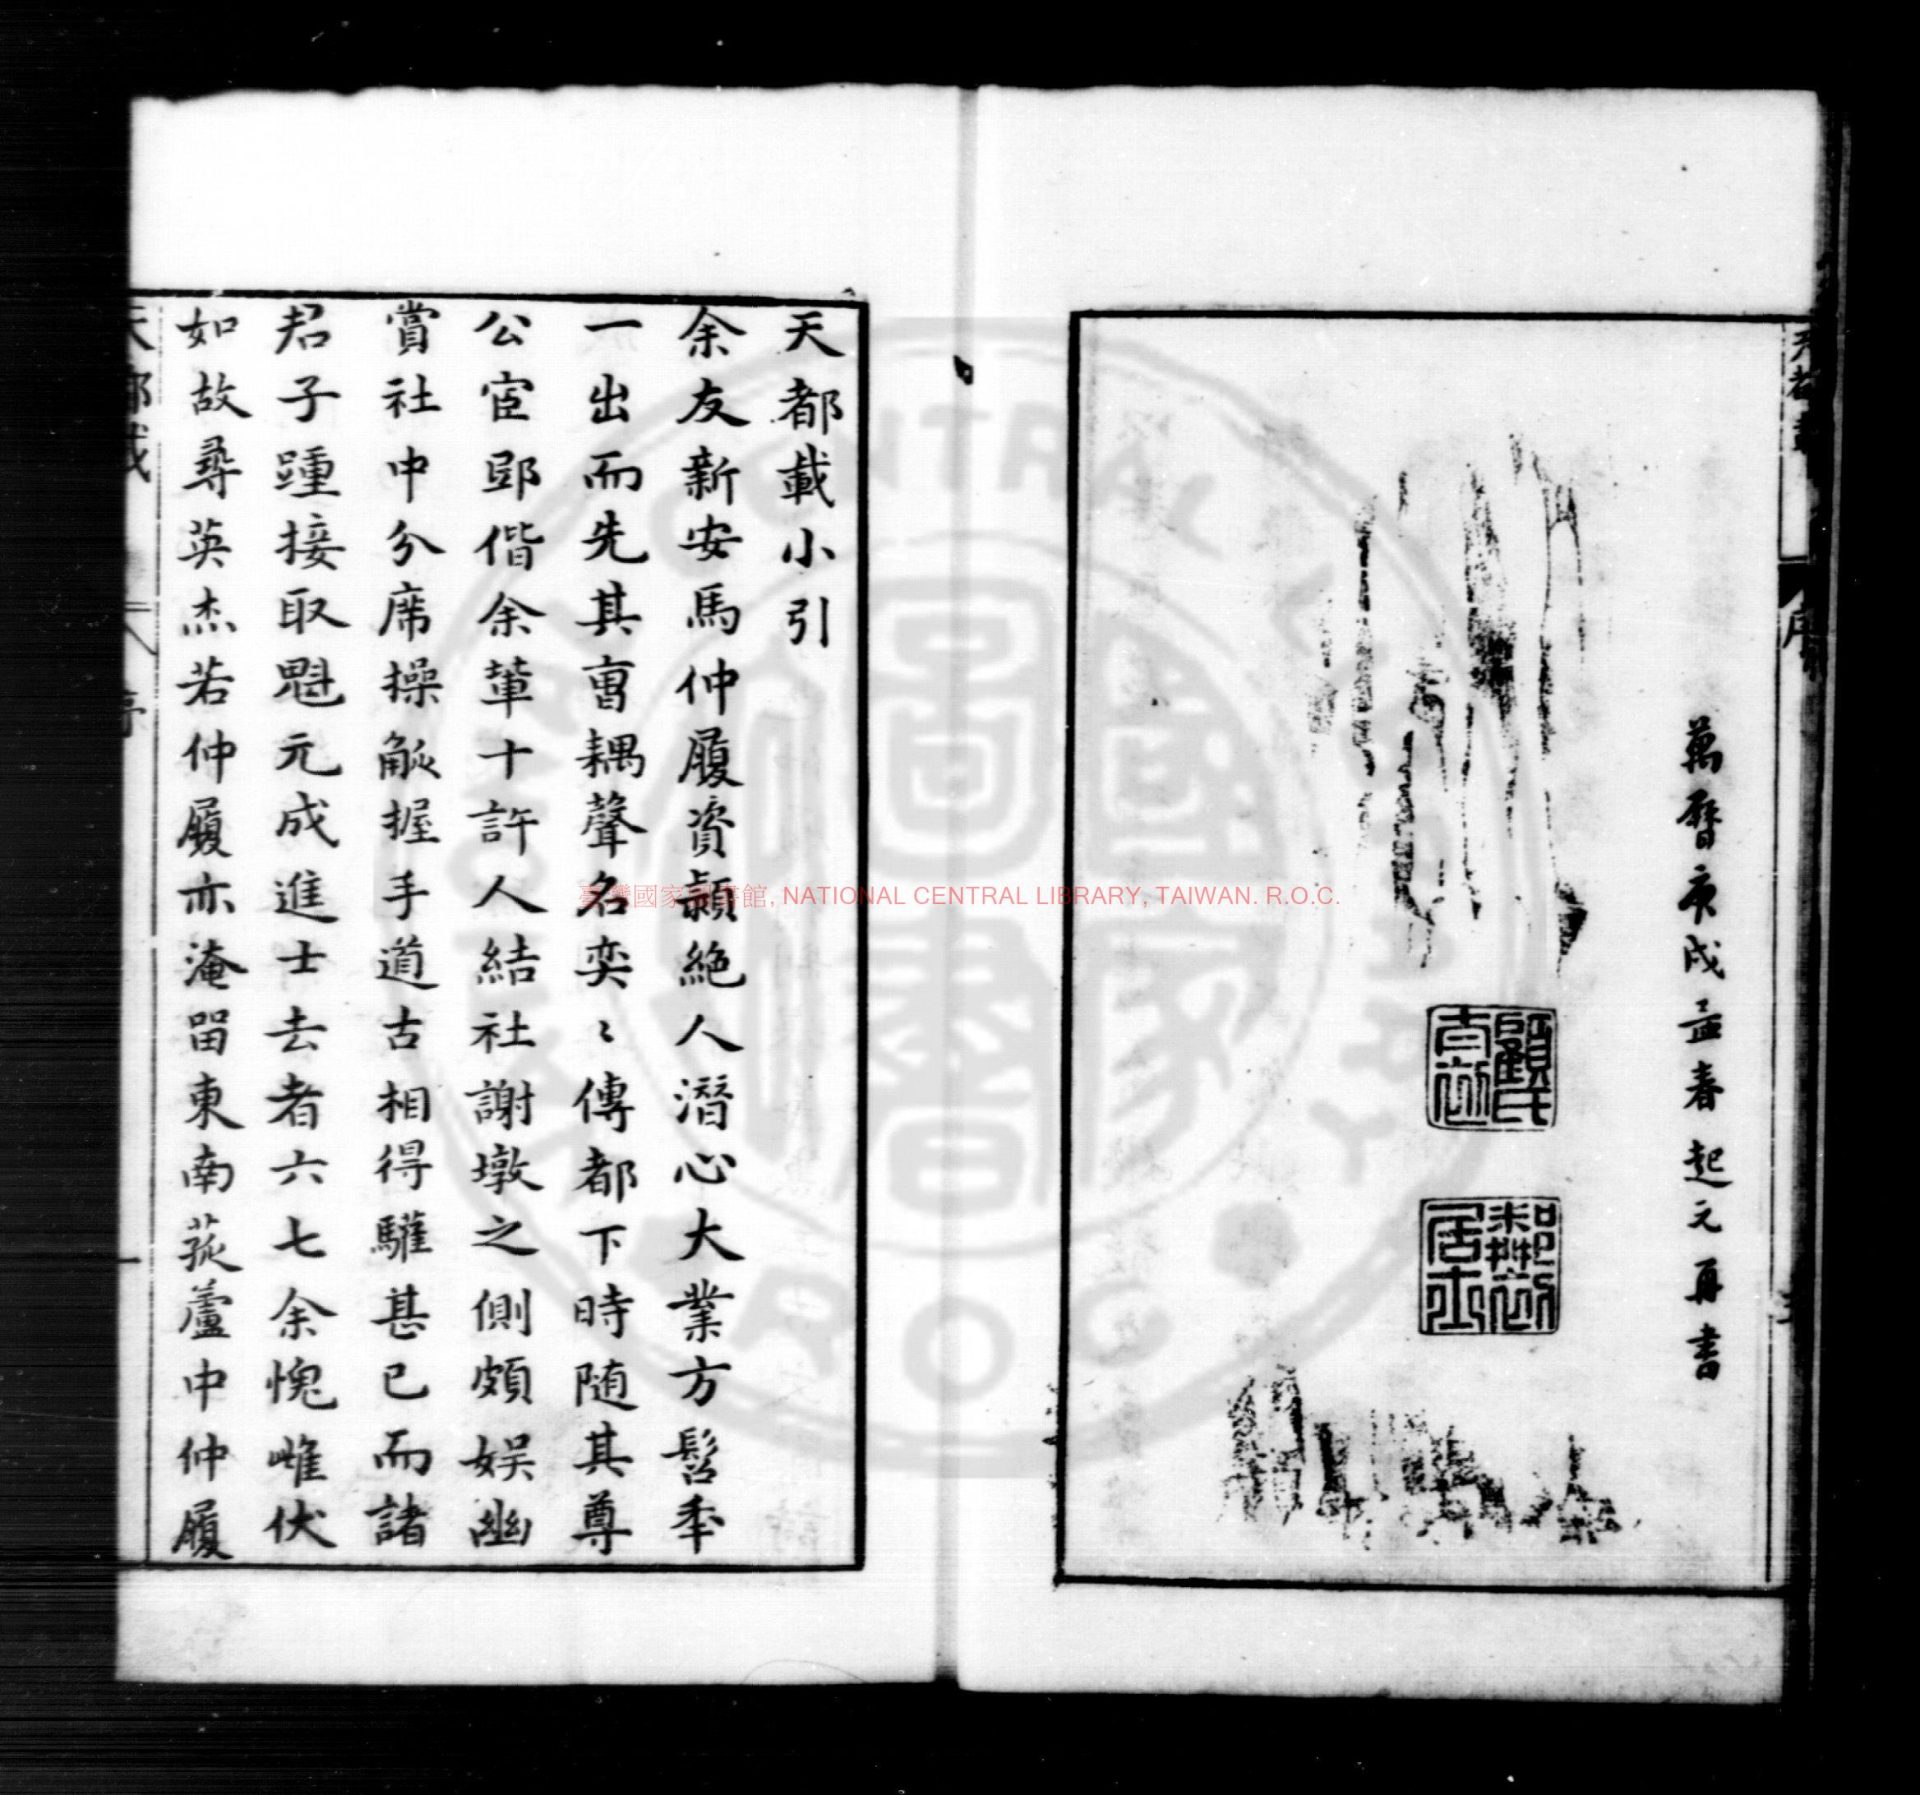 萬曆庚戌孟春起元再書
顧氏
居士
天都載小引
余友新安馬仲履資穎絕人潛心大業方髫年
一出而先其曹耦聲名奕〻傳都下時随其尊
公宦郢偕余輩十許人結社謝墩之側頗娱幽
賞社中分席操觚握手道古相得驩甚已而諸
君子踵接取魁元成進士去者六七余愧雌伏
如故尋英杰若仲履亦淹留東南菰蘆中仲履
臺灣國家圖書館, NATIONAL CENTRAL LIBRARY, TAIWAN. R.O.C.